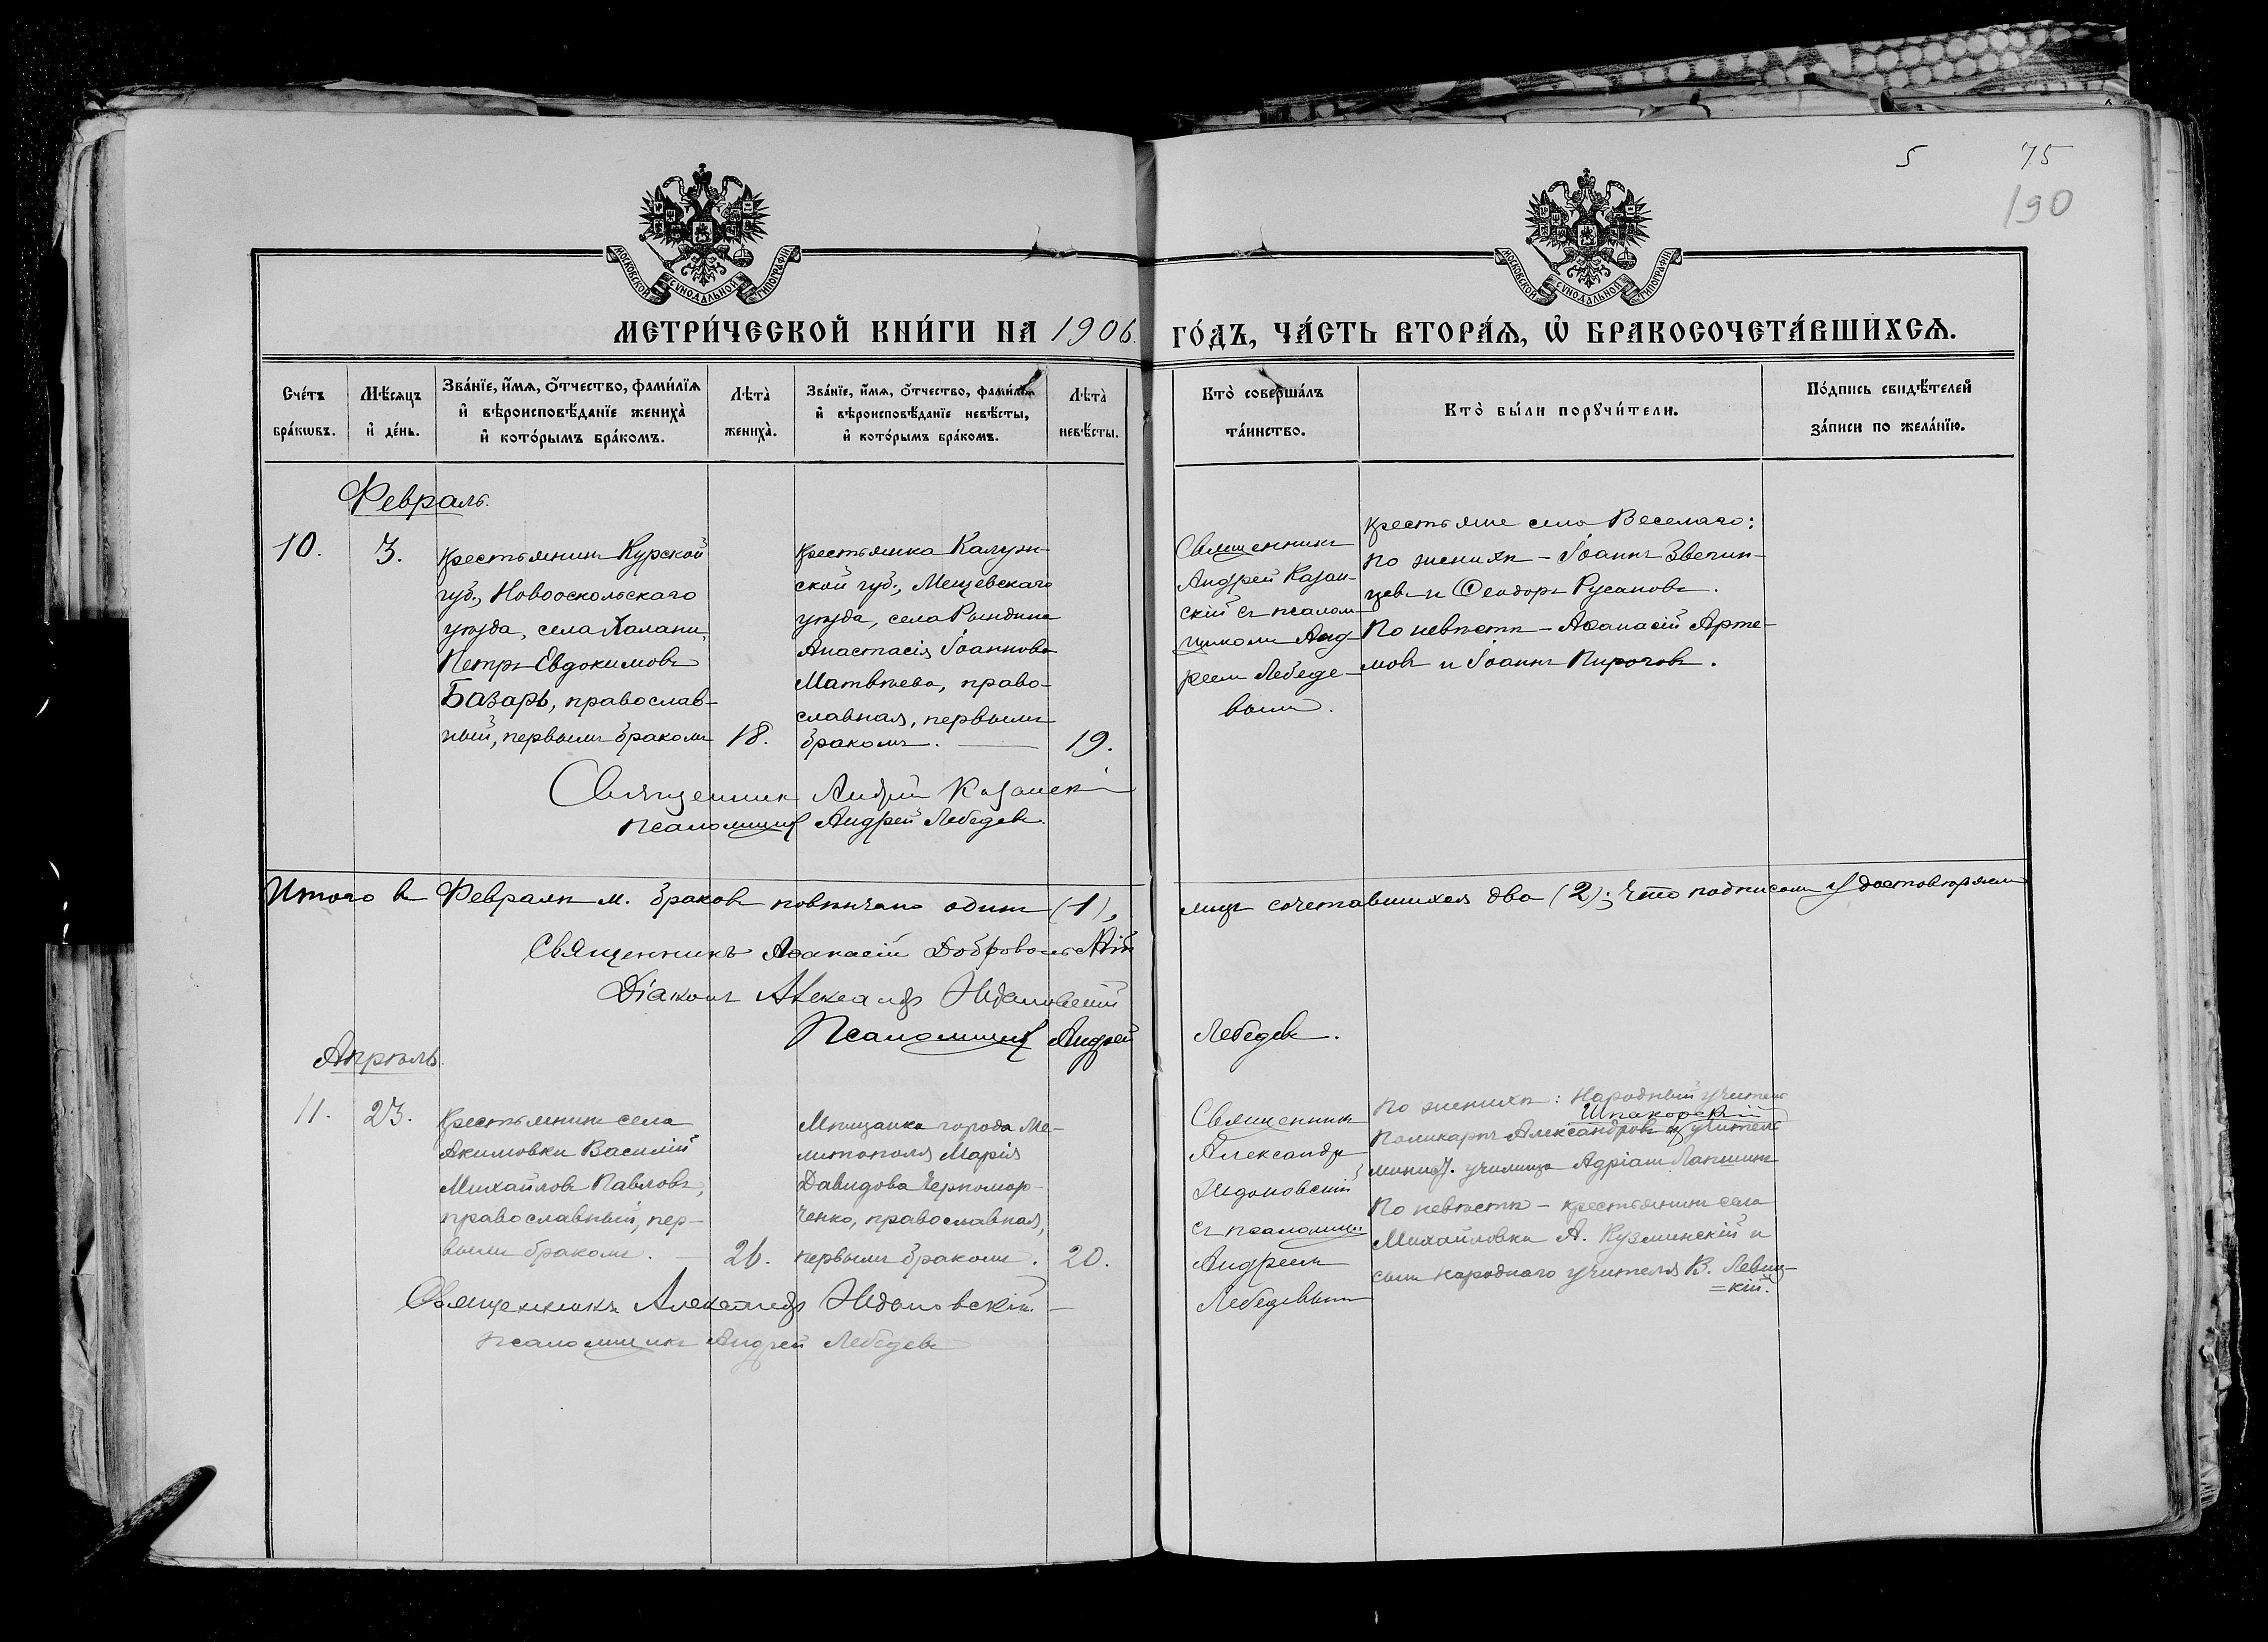 5 75
190
МОСКОВСКОЙ СѴНОДАЛЬНОЙ ТИПОГРАФІИ
МОСКОВСКОЙ СѴНОДАЛЬНОЙ ТИПОГРАФІИ
МЕТРИ́ЧЕСКОЙ КНИ́ГИ НА 1906. ГО́ДЪ, ЧА́СТЬ ВТОРА́Я, Ѡ҆ БРАКОСОЧЕТА́ВШИХСЯ.
Сче́тъ
бра́кѡвъ.
Мѣ́сяцъ
и҆ де́нь.
Зва́нїе, и҆́мя, ѻ҆́тчество, фами́лїя
и҆ вѣроисповѣ́данїе жениха̀
и҆ кото́рымъ бра́комъ.
Лѣта̀
жениха̀.
Зва́нїе, и҆́мя, ѻ҆́тчество, фами́лїя
и҆ вѣроисповѣ́данїе невѣ́сты,
и҆ кото́рымъ бра́комъ.
Лѣта̀
невѣ́сты.
Кто̀ соверша́лъ
та́инство.
Кто̀ бы́ли порꙋчи́тели.
По́дпись свидѣ́телей
за́писи по жела́нїю.
Февраль.
10.
3.
Крестьянинъ Курской
губ., Новооскольскаго
уѣзда, села Халани,
Петръ Евдокимовъ
Базарь, православ-
ный, первымъ бракомъ
18.
Крестьянка Калуж-
ской губ., Мещевскаго
уѣзда, села Рындина
Анастасія Іоаннова
Матвѣева, право-
славная, первымъ
бракомъ.
19.
Священникъ
Андрей Казан-
скій съ псалом-
щикомъ Анд-
реемъ Лебеде-
вымъ.
Крестьяне села Веселаго:
по женихѣ - Іоаннъ Звегин-
цевъ и Ѳеодоръ Русановъ.
По невѣстѣ - Аѳанасій Арте-
мовъ и Іоаннъ Пироговъ.
Священник Андрей Казанскій
Псаломщик Андрей Лебедевъ.
Итого въ Февралѣ м. браковъ повѣнчано одинъ (1), лицъ сочетавшихся два (2); Что подписомъ удостовѣряемъ
Священникъ Аѳанасій Добровольскій
Діаконъ Александръ Ждановскій
Псаломщик Андрей Лебедевъ.
Апрѣль.
11.
23.
Крестьянинъ села
Акимовки Василій
Михайловъ Павловъ,
православный, пер-
вымъ бракомъ.
26.
Мѣщанка города Ме-
литополя Марія
Давидова Черномор-
ченко, православная,
первымъ бракомъ.
20.
Священникъ
Александръ
Ждановскій
съ псаломщ.
Андреемъ
Лебедевымъ
По женихѣ: Народный учитель
Шпаковскій
Поликарпъ Александровъ и учитель
минист. училища Адріанъ Лапшинъ
По невѣстѣ - крестьянинъ села
Михайловки А. Кузминскій и
сынъ народнаго учителя В. Левиц-
=кій.
Священникъ Александръ Ждановскій.
Псаломщикъ Андрей Лебедевъ